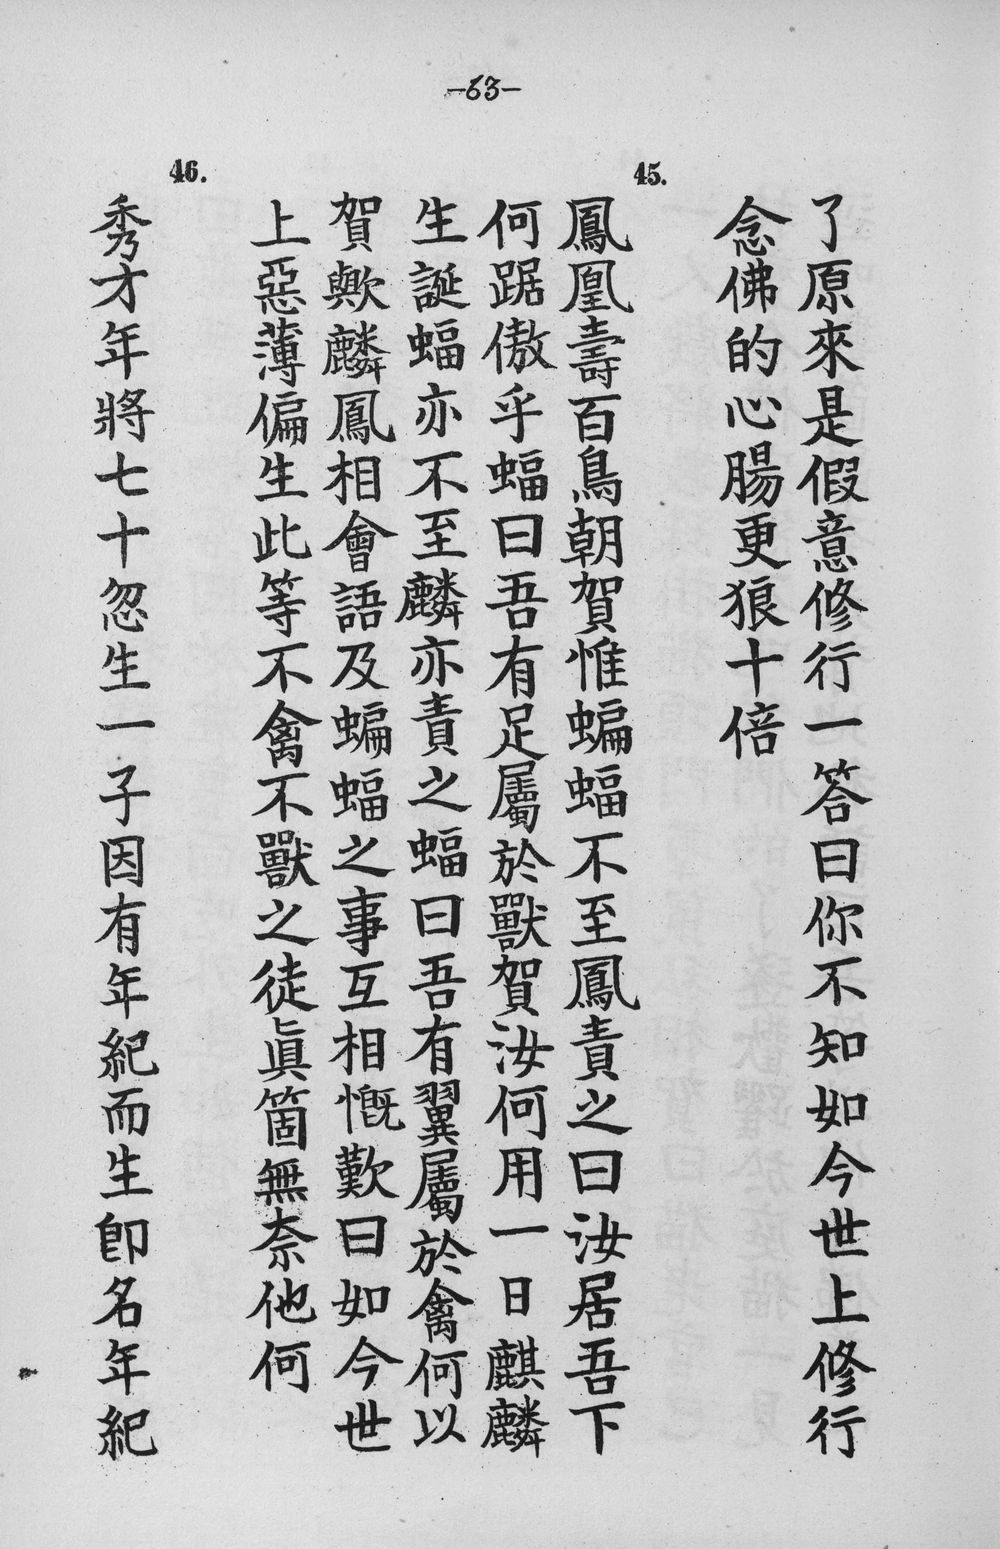 —63—
了原來是假意修行一答曰你不知如今世上修行
念佛的心腸更狼十倍
45.
鳳凰壽百鳥朝賀惟蝙蝠不至鳳責之曰汝居吾下
何踞傲乎蝠曰吾有足屬於獸賀汝何用一日麒麟
生誕蝠亦不至麟亦責之蝠曰吾有翼屬於禽何以
賀歟麟鳳相會語及蝙蝠之事互相慨歎曰如今世
上惡薄偏生此等不禽不獸之徒眞箇無奈他何
46.
秀才年將七十忽生一子因有年紀而生卽名年紀